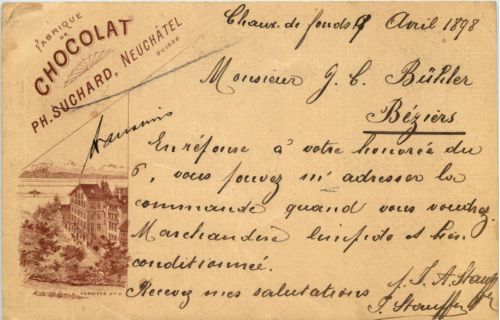 FABRIQUE
DE
CHOCOLAT
PH. SUCHARD, NEUCHÂTEL
SUISSE
Chaux-de-fonds Avril 1898
Monsieur J. C. Bühler
Béziers
En réponse à votre honorée du
6, vous pouvez m'adresser la
commande quand vous voudrez
Marchandise limpide et bien
conditionnée.
Recevez mes salutations
J. Stauffer